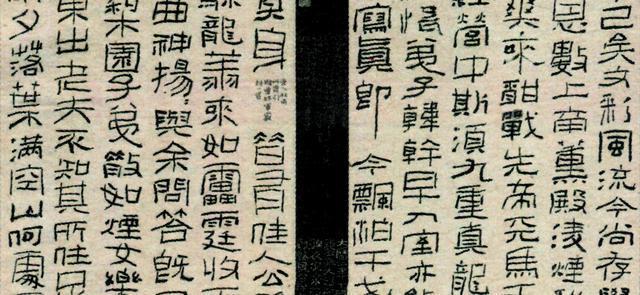 己矣文彩風流今尚存學
恩數上南薰殿凌煙
爽來酣戰先帝天馬
經營中斯須九重真龍
弟子韓幹早入室亦能
寫真即今飄泊干戈
身昔有佳人公
龍翔來如雷霆收
曲神揚與余問答既
梨園子弟散如煙女樂
東出老夫不知其所往足
夕落葉滿空山何處